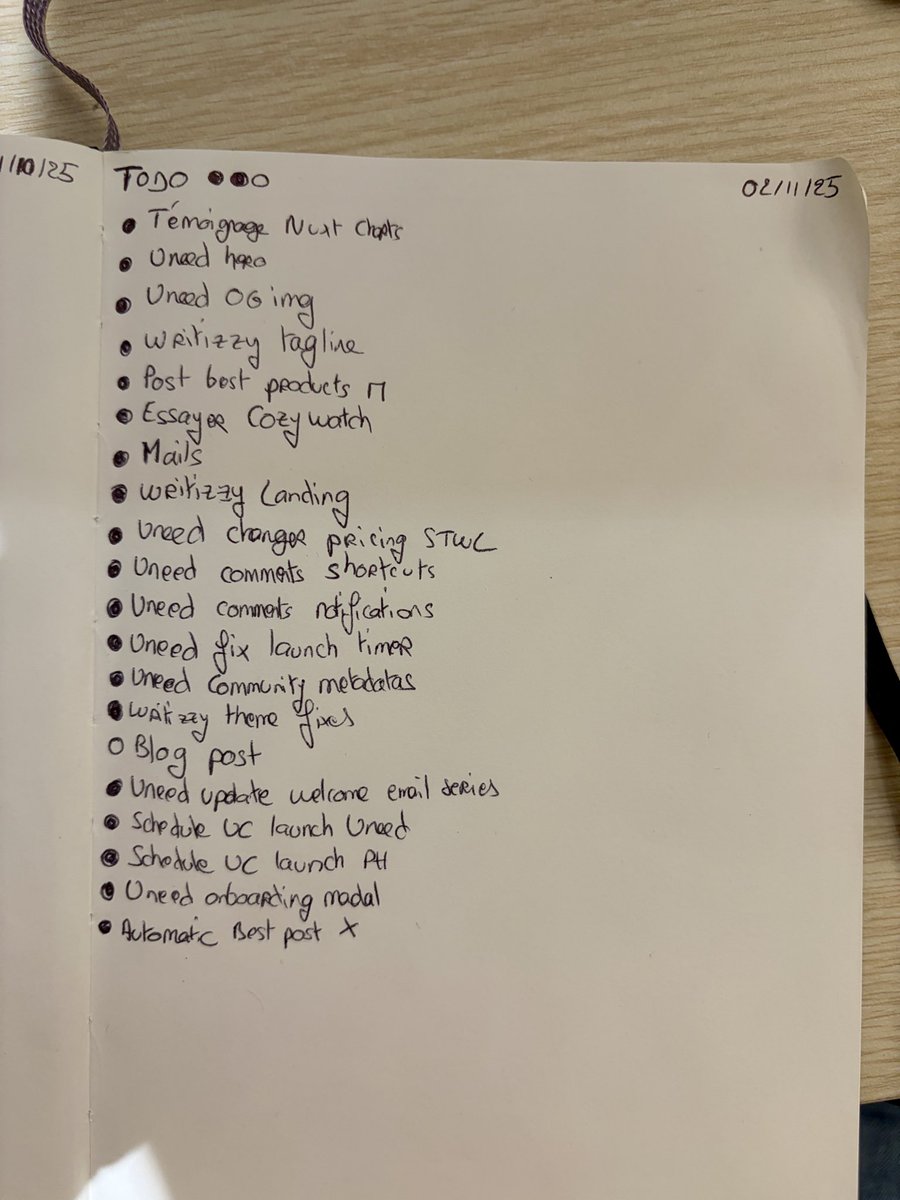 /10/25
TODO
02/11/25
Témoignage Nuxt Charts
Uneed hero
Uneed OG img
Writizzy tagline
Post best products M
Essayer Cozywatch
Mails
Writizzy Landing
Uneed changer pricing STWL
Uneed comments shortcuts
Uneed comments notifications
Uneed fix launch timer
Uneed community metadatas
Writizzy theme fixes
Blog post
Uneed update welcome email series
Schedule UC launch Uneed
Schedule UC launch PH
Uneed onboarding modal
Automatic Best post X